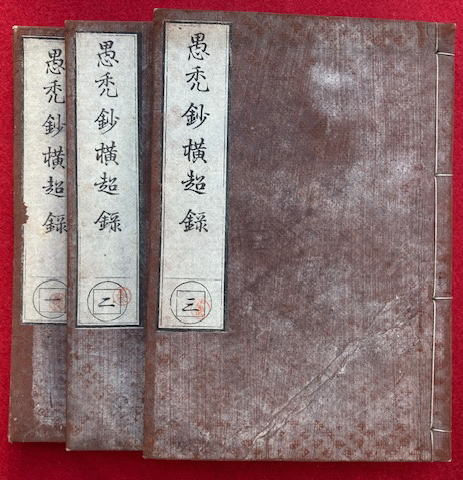 愚禿鈔横超録
三
愚禿鈔横超録
二
愚禿鈔横超録
一